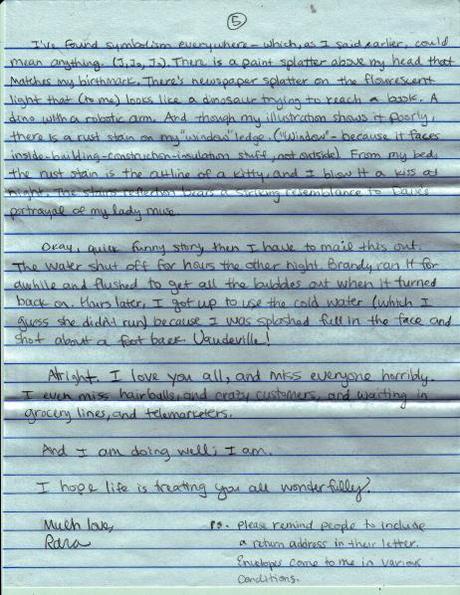 5
I've found symbolism everywhere - which, as I said earlier, could
mean anything. (J, Jo, Js) There is a paint splatter above my head that
matches my birthmark. There's newspaper splatter on the flourescent
light that (to me) looks like a dinosaur trying to reach a book. A
dino with a robotic arm. And though my illustration shows it poorly,
there is a rust stain on my "window" ledge. ("Window" - because it faces
inside-building-construction-insulation stuff, not outside). From my bed,
the rust stain is the outline of a kitty, and I blow it a kiss at
night. The stains reflection bears a striking resemblance to
portrayal of my lady muse.
Okay, quick funny story, then I have to mail this out.
The water shut off for hours the other night. Brandy ran it for
awhile and flushed to get all the bubbles out when it turned
back on. Hours later, I got up to use the cold water (which I
guess she didn't run) because I was splashed full in the face and
shot about a foot back. Vaudeville!
Alright. I love you all, and miss everyone horribly.
I even miss hairballs, and crazy customers, and waiting in
grocery lines, and telemarketers.
And I am doing well; I am.
I hope life is treating you all wonderfully!
Much love,
Rara
ps. Please remind people to include
a return address in their letter.
Envelopes come to me in various
conditions.